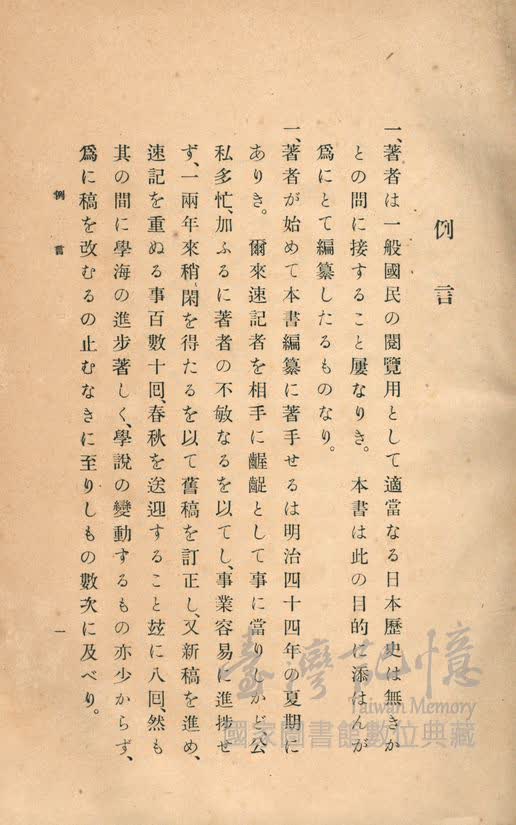 例言
一、著者は一般國民の閲覽用として適當なる日本歷史は無きか
との問に接すること屢なりき。 本書は此の目的に添はんが
爲にとて編纂したるものなり。
一、著者が始めて本書編纂に著手せるは明治四十四年の夏期に
ありき。 爾來速記者を相手に齷齪として事に當りしかど、公
私多忙、加ふるに著者の不敏なるを以てし、事業容易に進捗せ
ず、一兩年來稍閑を得たるを以て舊稿を訂正し、又新稿を進め、
速記を重ぬる事百數十回、春秋を送迎すること玆に八回、然も
其の間に學海の進步著しく、學說の變動するもの亦少からず、
爲に稿を改むるの止むなきに至りしもの數次に及べり。
例言
一
臺灣記憶
Taiwan Memory
國家圖書館數位典藏